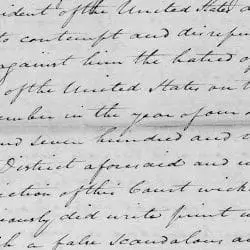 ident of the United States a
to contempt and disrepu
against him the hatred o
of the United States on t
ember in the year of our
nd seven hundred and n
District aforesaid and w
iction of this Court wick
iously did write print u
h a false scandalous a